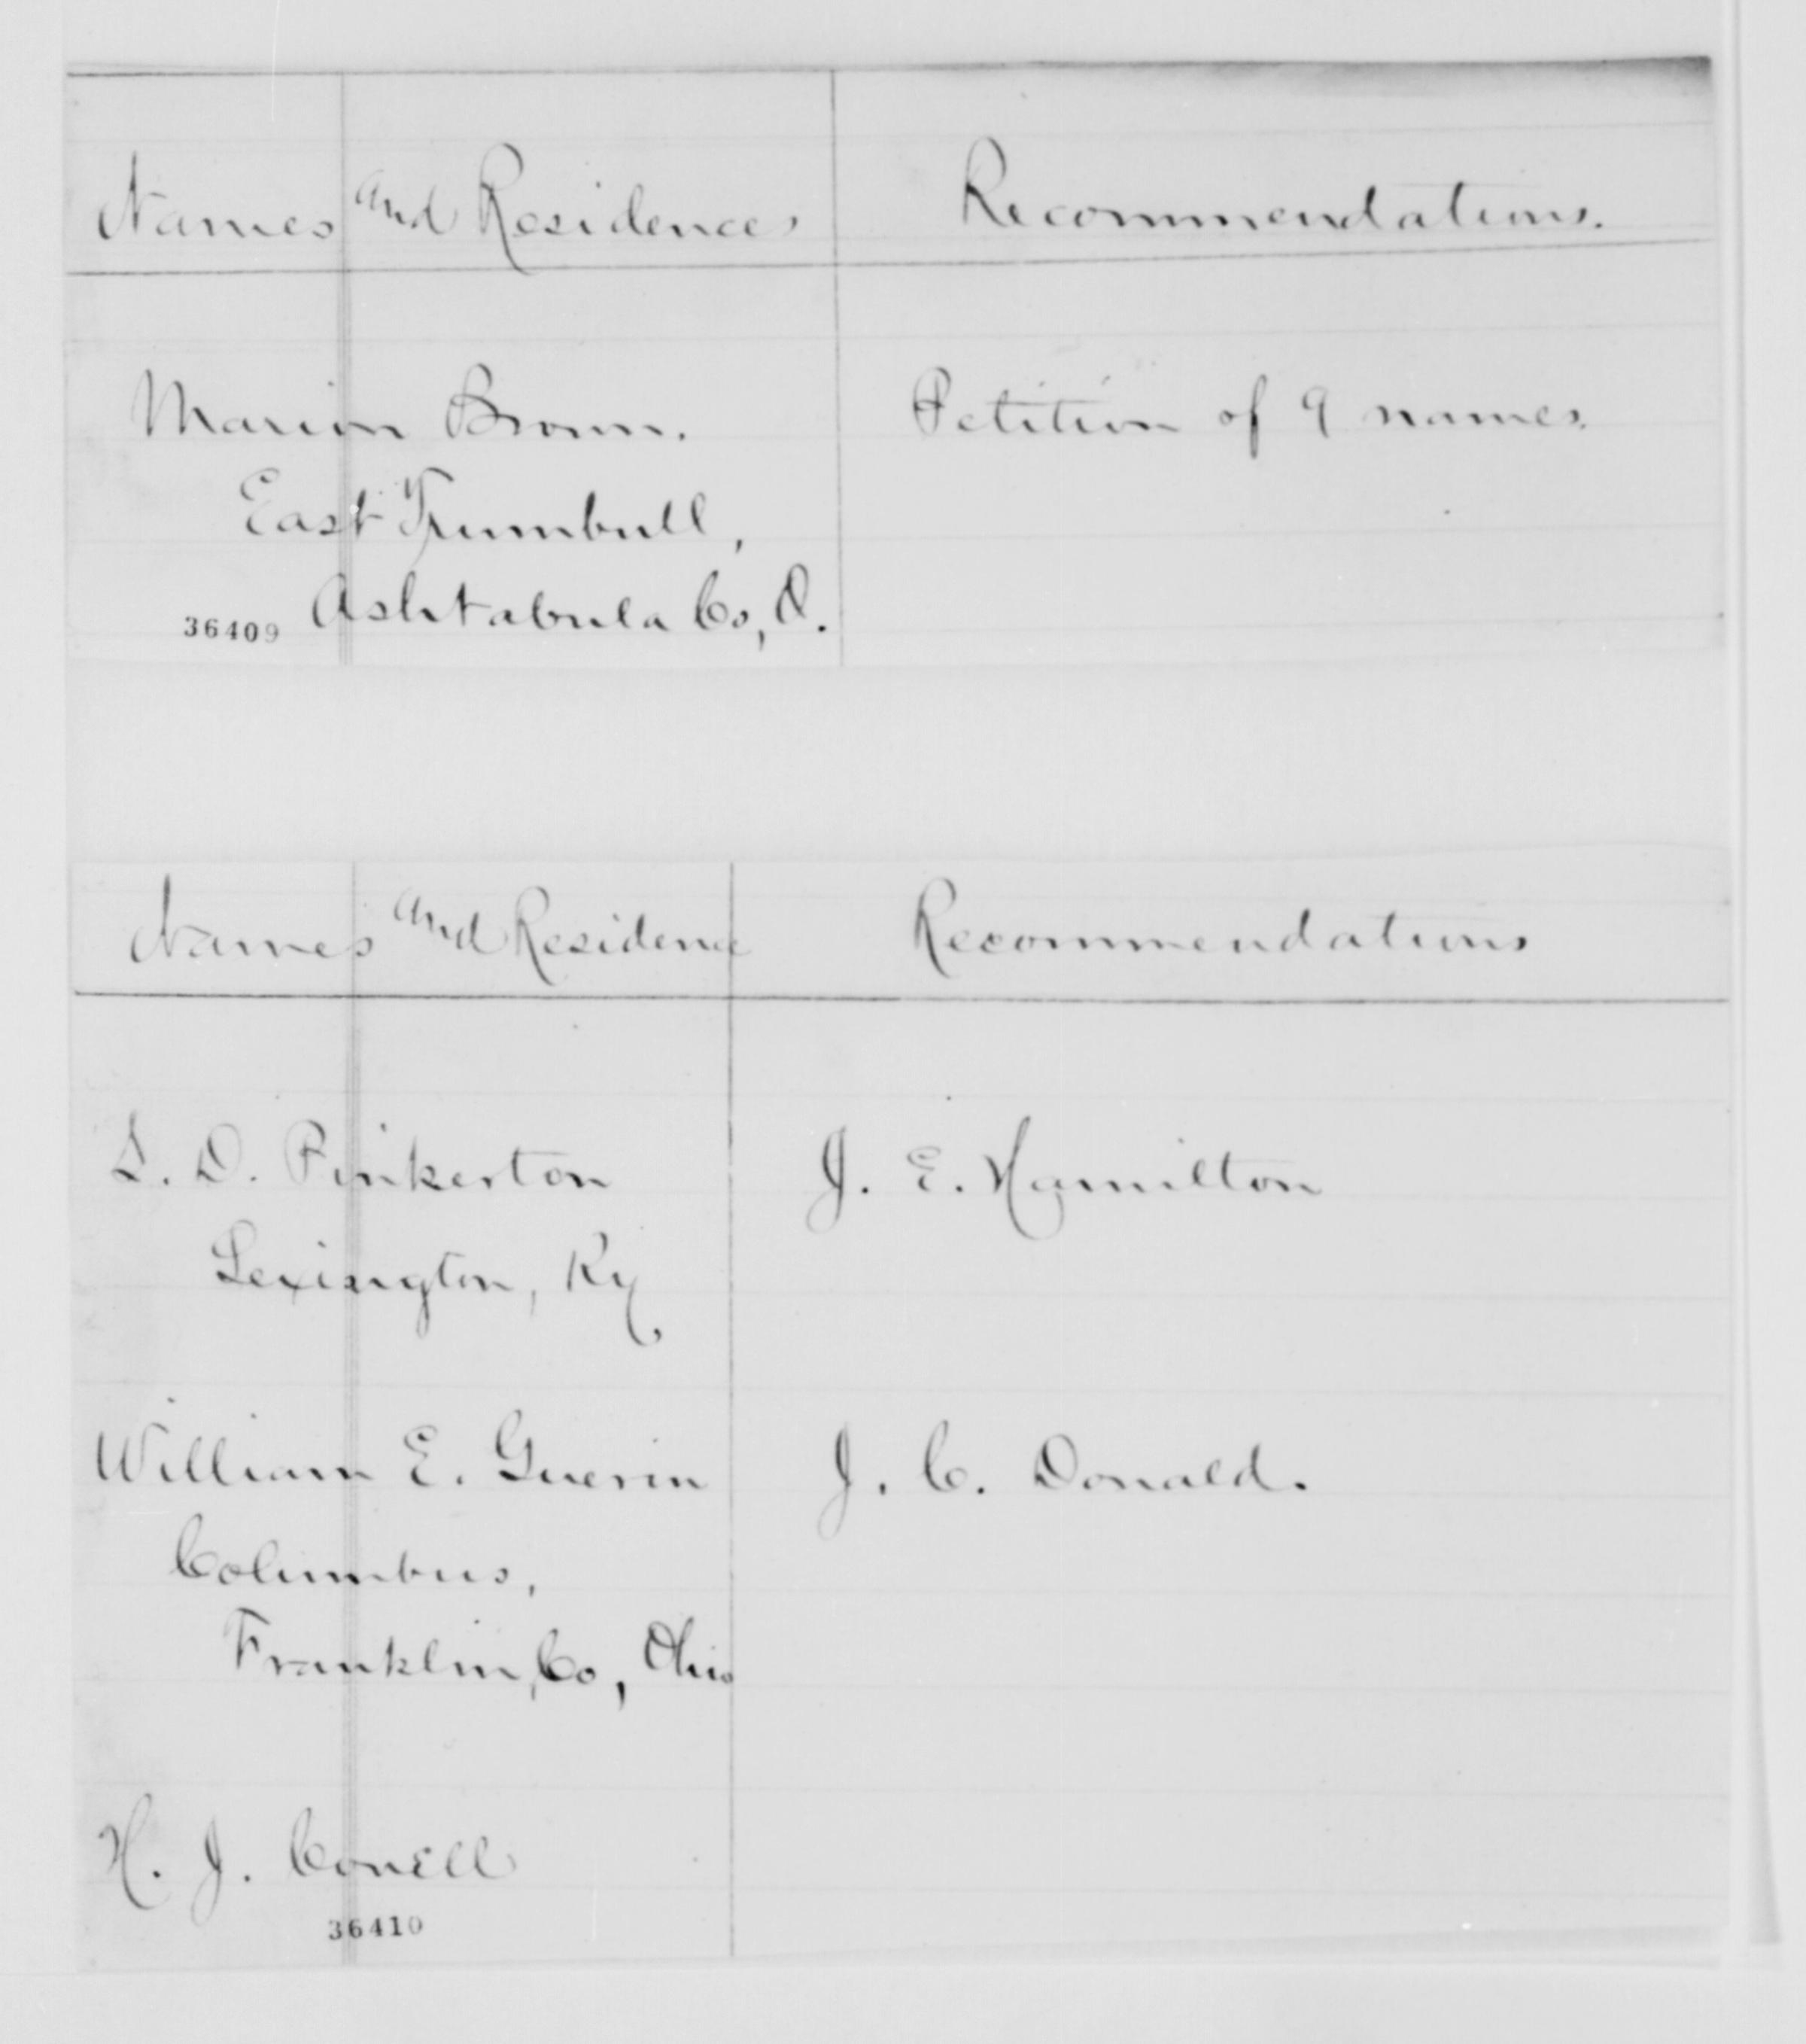 Names and Residences Recommendations.
Marion Brown. Petition of 9 names.
East Trumbull,
Ashtabula Co, O.
36409
Names and Residence Recommendations
L. D. Pinkerton J. E. Hamilton
Lexington, Ky,
William E. Guerin J. C. Donald.
Columbus,
Franklin, Co, Ohio
H. J. Conell
36410